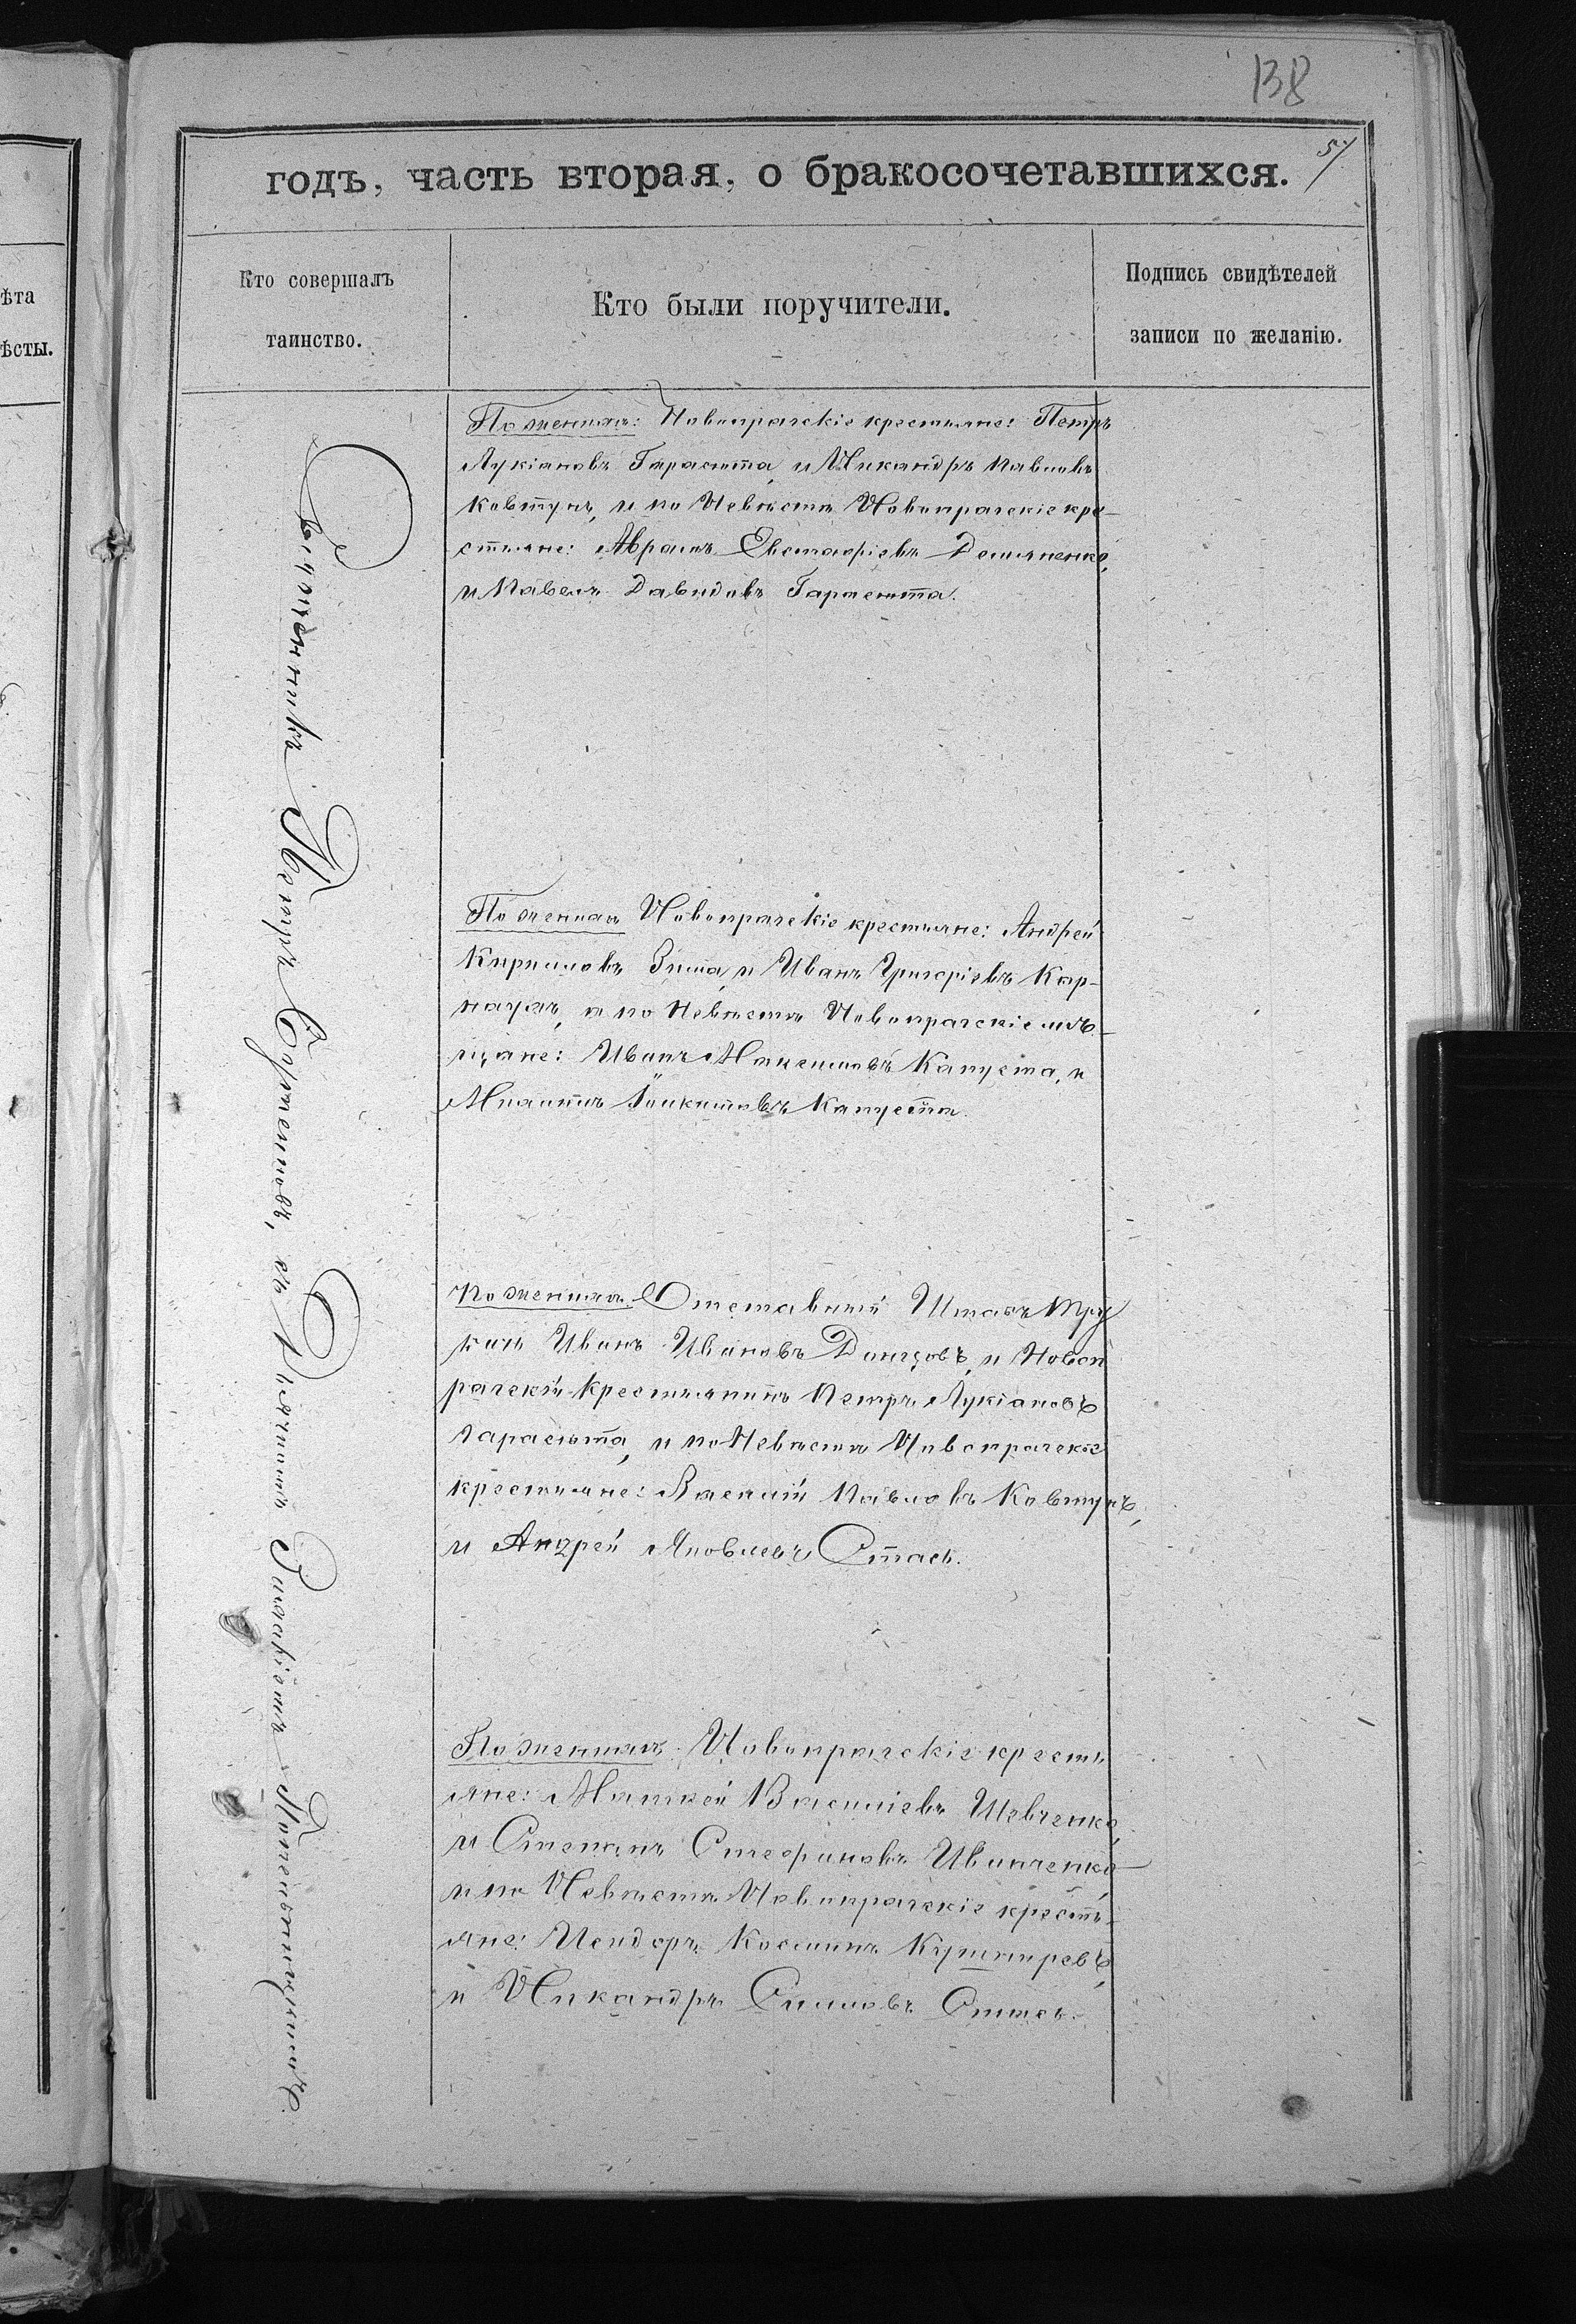 138
57
годъ, часть вторая, о бракосочетавшихся.
Кто совершалъ
таинство.
Кто были поручители.
Подпись свидѣтелей
записи по желанію.
ѣта
ѣсты.
По женихѣ: Новопрагскіе крестьяне: Петръ
Лукіановъ Гарасюта, и Никандръ Павловъ
Ковтунъ, и по Невѣстѣ Новопрагскіе кре-
стьяне: Аврамъ Евстафіевъ Демяненко,
и Павелъ Давидовъ Гарасюта.
По женихѣ Новопрагскіе крестьяне: Андрей
Кирилловъ Зима, и Иванъ Григоріевъ Кар-
наухъ, и по Невѣстѣ Новопрагскіе мѣ-
щане: Иванъ Максимовъ Капуста, и
Капуста.
По женихѣ Отставный
Иванъ Ивановъ Донцовъ, и Новоп
рагскій Крестьянинъ Петръ Лукіановъ
Гарасюта, и по Невѣстѣ Новопрагскіе
крестьяне: Василій Павловъ Ковтунъ,
и Андрей Яковлевъ Стась.
По женихѣ Новопрагскіе кресть
яне: Василіевъ Шевченко,
и Степанъ Стефановъ Иванченко
и по Невѣстѣ Новопрагскіе кресть-
яне: Исидоръ Косминъ Кушниревъ,
и Никандръ Симовъ Стась.
Священникъ Петръ съ Дьячкомъ